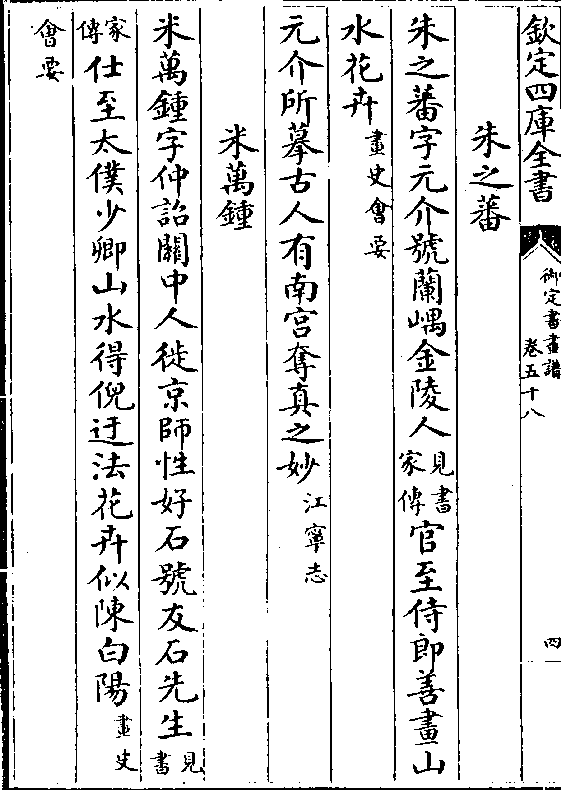 欽定四庫全書
御定書畫譜
卷五十八
四
朱之蕃
朱之蕃字元介號蘭嵎金陵人見書家傳官至侍郎善畫山
水花卉畫史會要
元介所摹古人有南宮奪真之妙江寧志
米萬鍾
米萬鍾字仲詔關中人徙京師性好石號友石先生見書
家傳仕至太僕少卿山水得倪迂法花卉似陳白陽畫史
會要